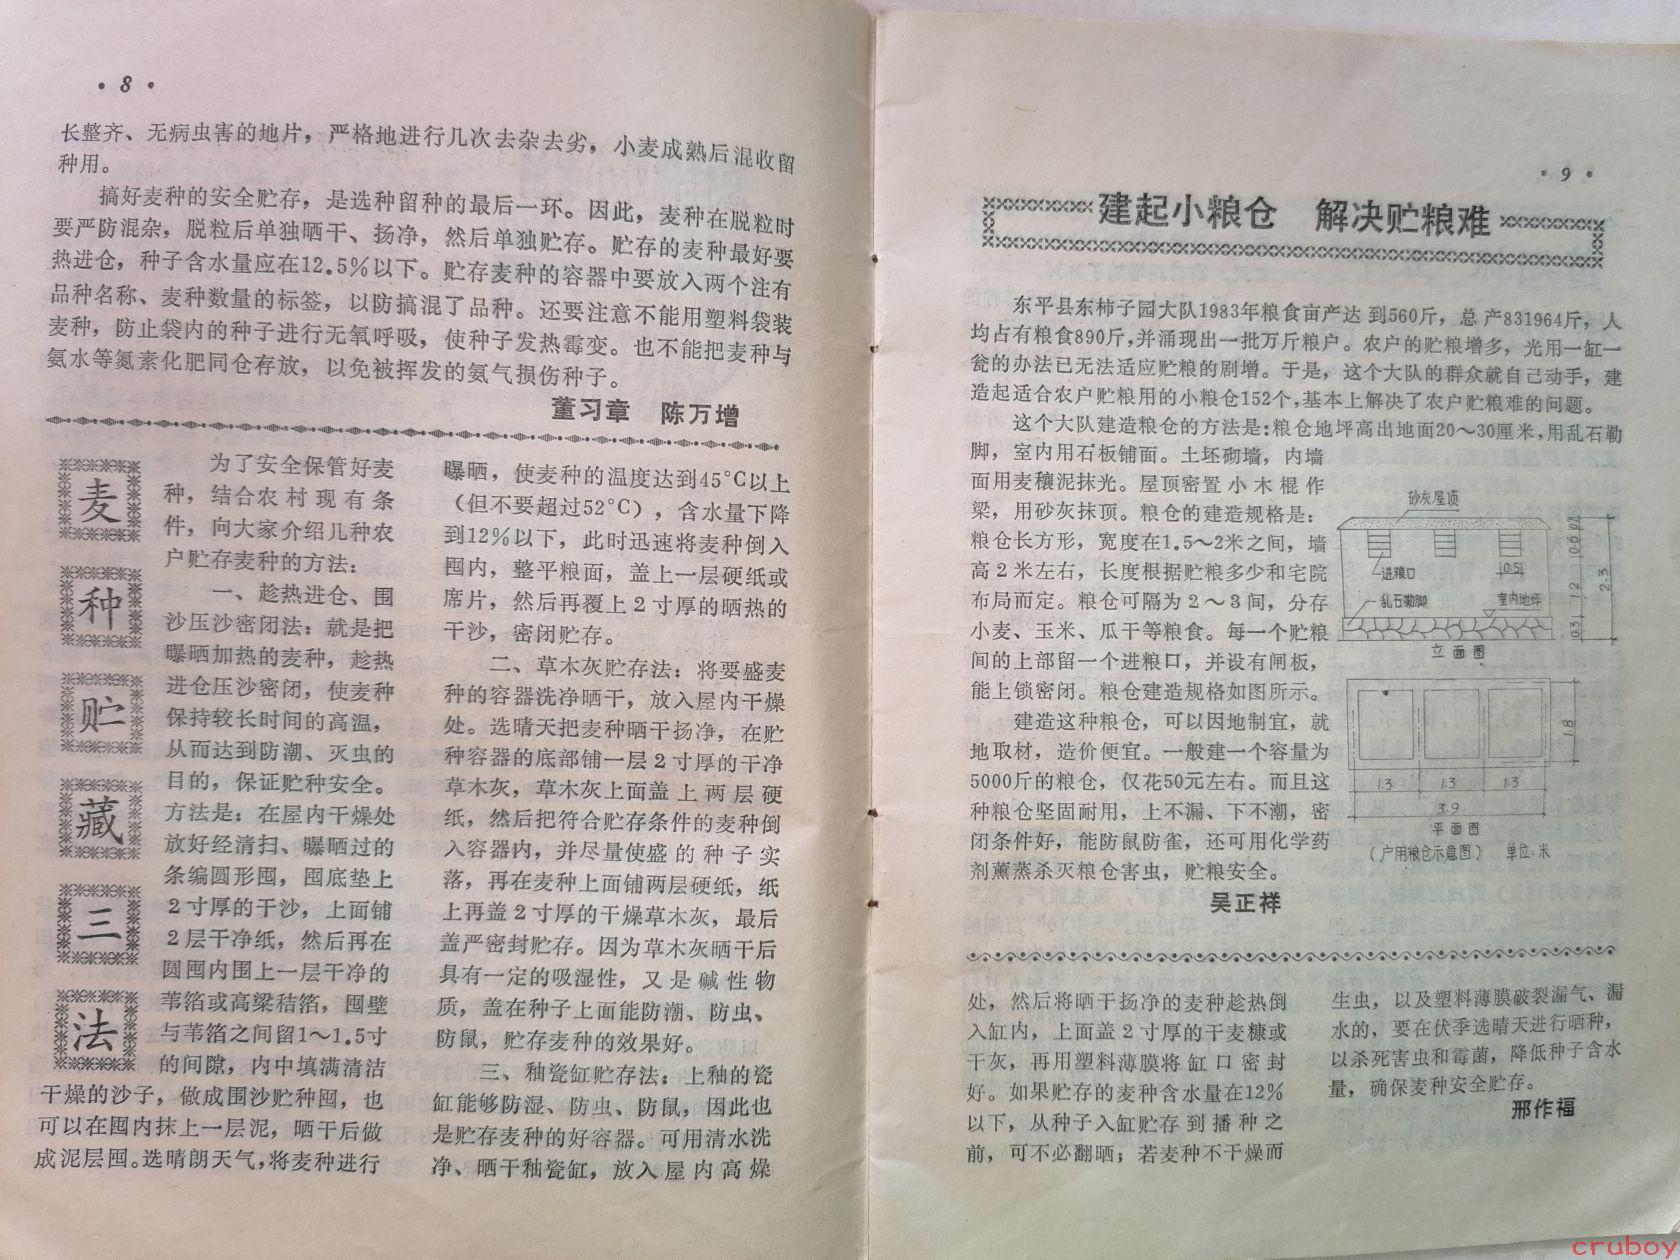 • 8 •
长整齐、无病虫害的地片，严格地进行几次去杂去劣，小麦成熟后混收留
种用。
搞好麦种的安全贮存，是选种留种的最后一环。因此，麦种在脱粒时
要严防混杂，脱粒后单独晒干、扬净，然后单独贮存。贮存的麦种最好要
热进仓，种子含水量应在12.5%以下。贮存麦种的容器中要放入两个注有
品种名称、麦种数量的标签，以防搞混了品种。还要注意不能用塑料袋装
麦种，防止袋内的种子进行无氧呼吸，使种子发热霉变。也不能把麦种与
氨水等氮素化肥同仓存放，以免被挥发的氨气损伤种子。
董习章　陈万增
麦
种
贮
藏
三
法
为了安全保管好麦
种，结合农村现有条
件，向大家介绍几种农
户贮存麦种的方法：
一、趁热进仓、围
沙压沙密闭法：就是把
曝晒加热的麦种，趁热
进仓压沙密闭，使麦种
保持较长时间的高温，
从而达到防潮、灭虫的
目的，保证贮种安全。
方法是：在屋内干燥处
放好经清扫、曝晒过的
条编圆形囤，囤底垫上
2寸厚的干沙，上面铺
2层干净纸，然后再在
圆囤内围上一层干净的
苇箔或高粱秸箔，囤壁
与苇箔之间留1～1.5寸
的间隙，内中填满清洁
干燥的沙子，做成围沙贮种囤，也
可以在囤内抹上一层泥，晒干后做
成泥层囤。选晴朗天气，将麦种进行
曝晒，使麦种的温度达到45°C以上
（但不要超过52°C），含水量下降
到12%以下，此时迅速将麦种倒入
囤内，整平粮面，盖上一层硬纸或
席片，然后再覆上2寸厚的晒热的
干沙，密闭贮存。
二、草木灰贮存法：将要盛麦
种的容器洗净晒干，放入屋内干燥
处。选晴天把麦种晒干扬净，在贮
种容器的底部铺一层2寸厚的干净
草木灰，草木灰上面盖上两层硬
纸，然后把符合贮存条件的麦种倒
入容器内，并尽量使盛的种子实
落，再在麦种上面铺两层硬纸，纸
上再盖2寸厚的干燥草木灰，最后
盖严密封贮存。因为草木灰晒干后
具有一定的吸湿性，又是碱性物
质，盖在种子上面能防潮、防虫、
防鼠，贮存麦种的效果好。
三、釉瓷缸贮存法：上釉的瓷
缸能够防湿、防虫、防鼠，因此也
是贮存麦种的好容器。可用清水洗
净、晒干釉瓷缸，放入屋内高燥
• 9 •
建起小粮仓　解决贮粮难
东平县东柿子园大队1983年粮食亩产达到560斤，总产831964斤，人
均占有粮食890斤，并涌现出一批万斤粮户。农户的贮粮增多，光用一缸一
瓮的办法已无法适应贮粮的剧增。于是，这个大队的群众就自己动手，建
造起适合农户贮粮用的小粮仓152个，基本上解决了农户贮粮难的问题。
这个大队建造粮仓的方法是：粮仓地坪高出地面20～30厘米，用乱石勒
脚，室内用石板铺面。土坯砌墙，内墙
面用麦穰泥抹光。屋顶密置小木棍作
梁，用砂灰抹顶。粮仓的建造规格是：
粮仓长方形，宽度在1.5～2米之间，墙
高2米左右，长度根据贮粮多少和宅院
布局而定。粮仓可隔为2～3间，分存
小麦、玉米、瓜干等粮食。每一个贮粮
间的上部留一个进粮口，并设有闸板，
能上锁密闭。粮仓建造规格如图所示。
建造这种粮仓，可以因地制宜，就
地取材，造价便宜。一般建一个容量为
5000斤的粮仓，仅花50元左右。而且这
种粮仓坚固耐用，上不漏、下不潮，密
闭条件好，能防鼠防雀，还可用化学药
剂薰蒸杀灭粮仓害虫，贮粮安全。
吴正祥
砂灰屋顶
进粮口
0.5
乱石勒脚
室内地坪
0.2
0.6
1.2
0.3
2.3
立面图
1.8
1.3 1.3 1.3
3.9
平面图
（户用粮仓示意图）　单位：米
处，然后将晒干扬净的麦种趁热倒
入缸内，上面盖2寸厚的干麦糠或
干灰，再用塑料薄膜将缸口密封
好。如果贮存的麦种含水量在12%
以下，从种子入缸贮存到播种之
前，可不必翻晒；若麦种不干燥而
生虫，以及塑料薄膜破裂漏气、漏
水的，要在伏季选晴天进行晒种，
以杀死害虫和霉菌，降低种子含水
量，确保麦种安全贮存。
邢作福
cruboy